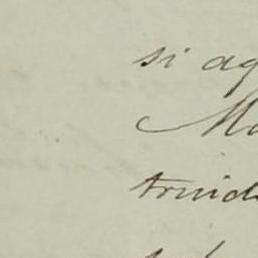 si ag
Ma
truid